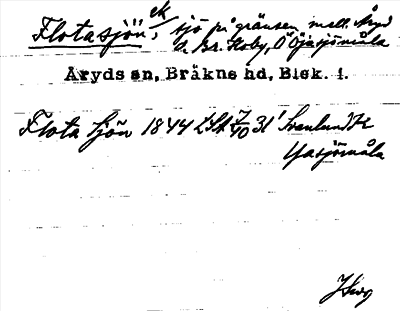 Flotasjön, ek
sjö på gränsen mell. Åryd
o. Br. Hoby, Ö Öjasjömåla
Åryds sn, Bräkne hd, Blek. l.
Flota sjön 1844 LSA 7/10 31 Svenlund k
Yasjömåla